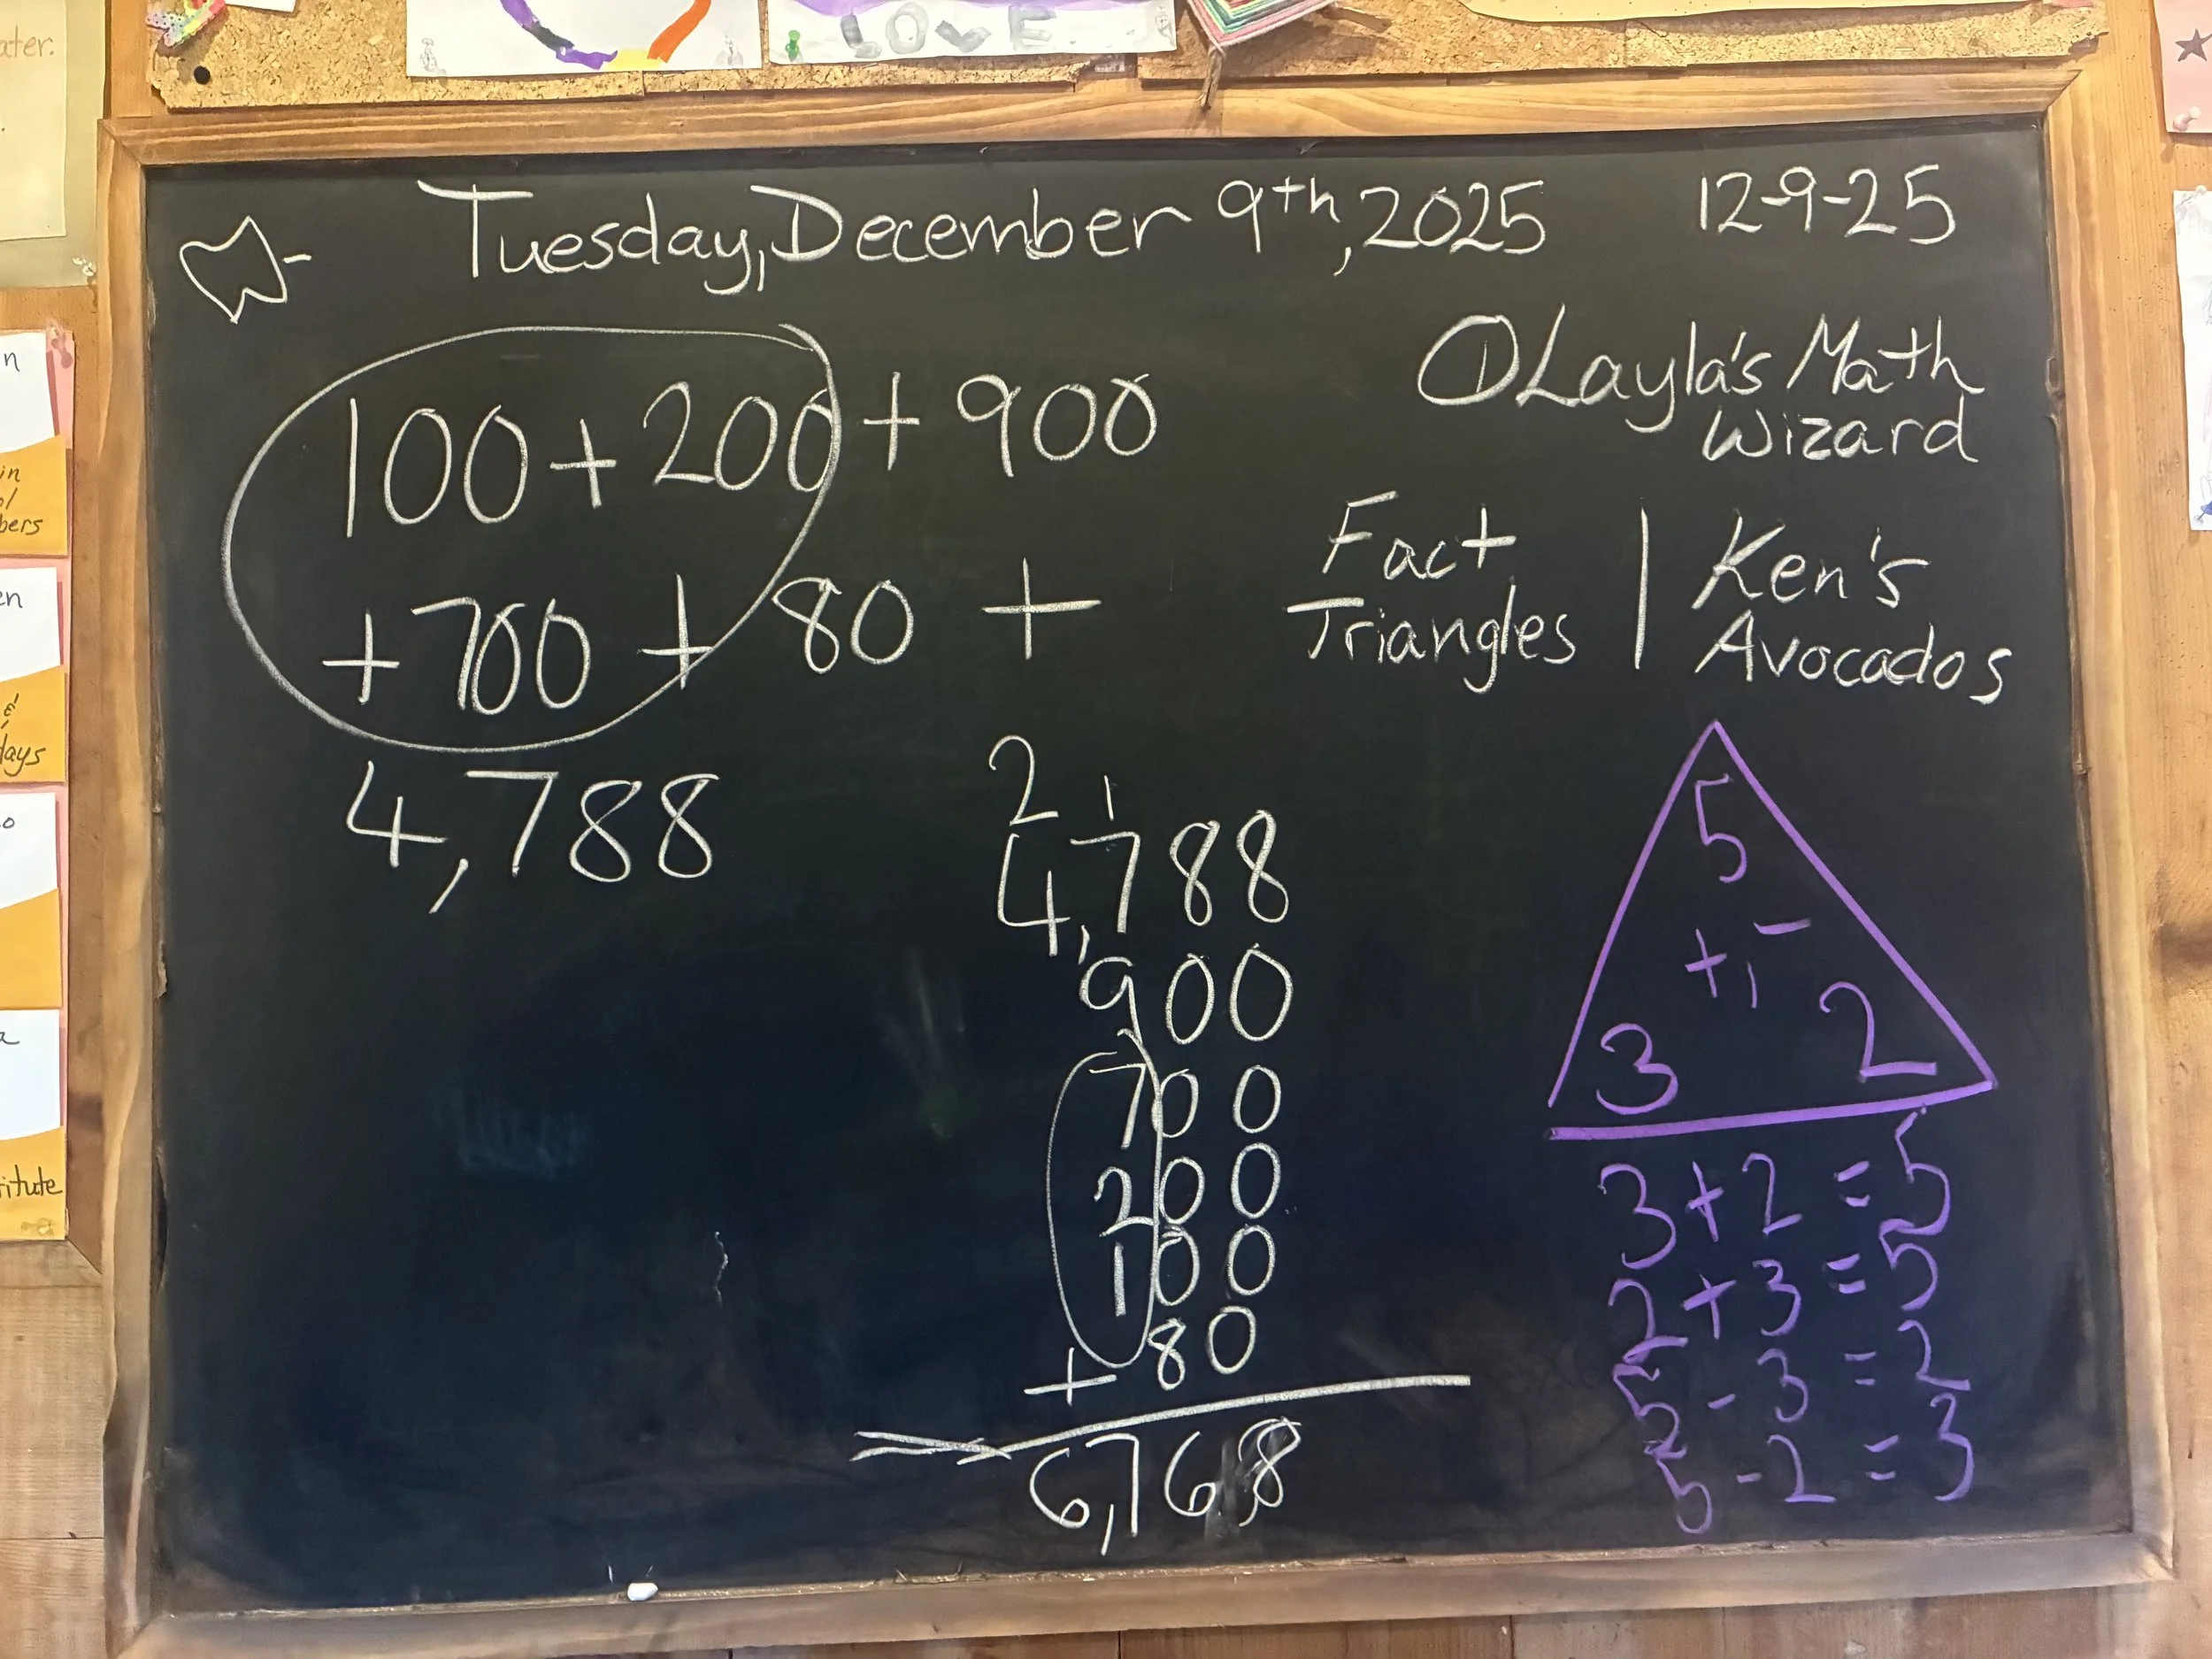 LOVE
Tuesday, December 9th, 2025
12-9-25
100 + 200 + 900
+ 700 + 80 +
4,788
① Layla's Math
Wizard
Fact
Triangles
Ken's
Avocados
2 1
4,788
900
700
200
100
+ 80
6,768
5
+, -
3 2
3 + 2 = 5
2 + 3 = 5
5 - 3 = 2
5 - 2 = 3
ater.
n
in
bers
en
&
days
titute